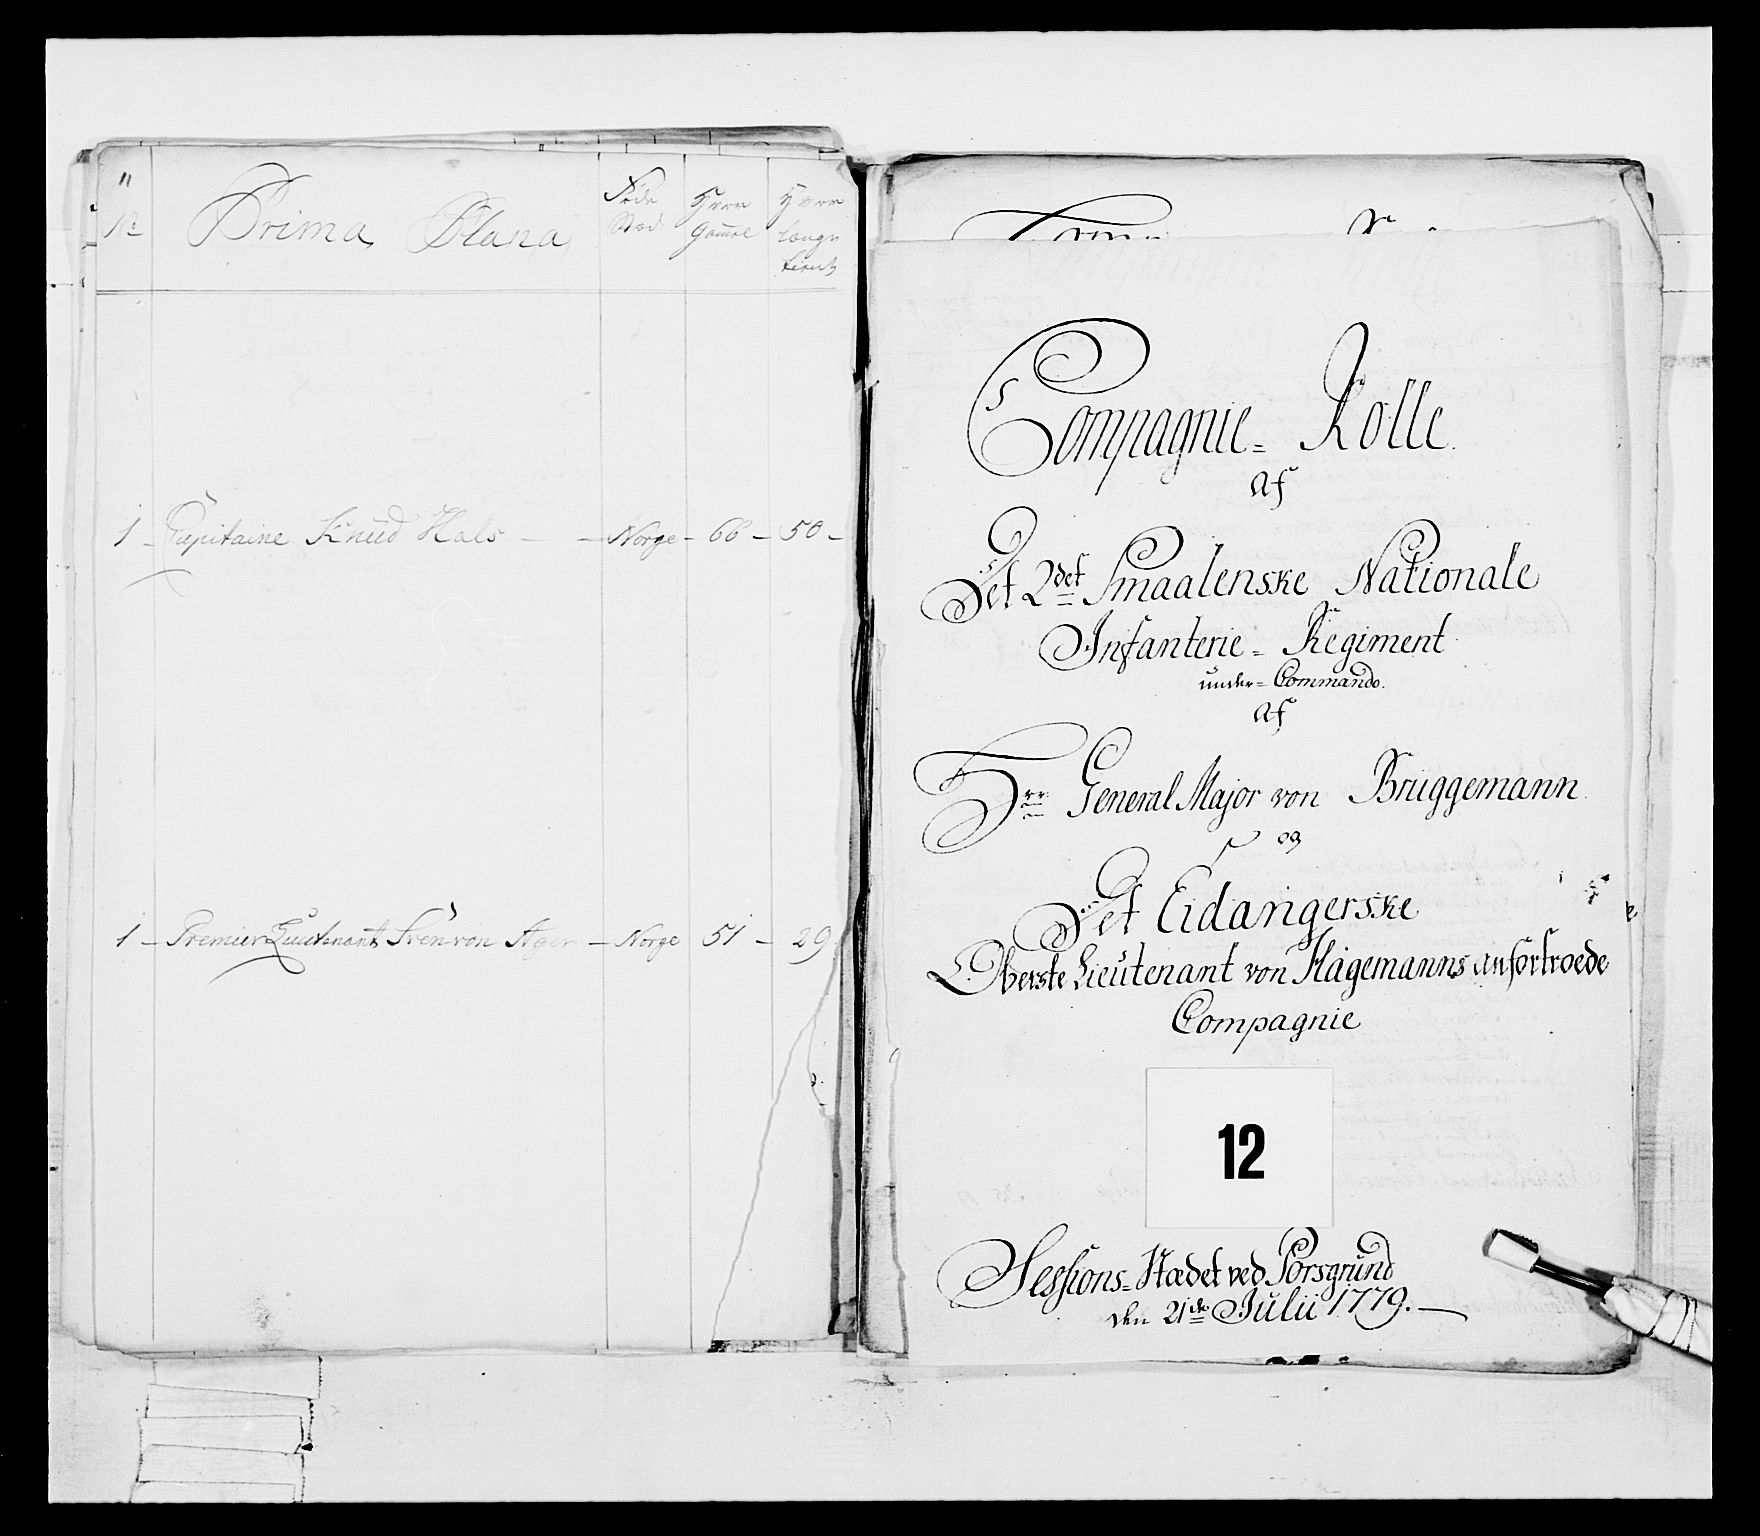 No
Prima Plana
Føde Stæd
Hvor Gamle
Hvor længe tient
1 - Capitaine Knud Hals - - Norge - 66 - 50 -
1 - Premier Lieutenant Frën von Ager - Norge 51 - 29
Compagnie = Rolle.
af
Det 2det Smaalenske Nationale
Infanterie = Regiment
under = Commando.
af
Hrr: General Major von Bruggemann.
og
Det Eidangerske
Oberste Lieutenant von Hagemanns anfortroede
Compagnie
12
Sessions = Stædet ved Porsgrund
den 21de Julii 1779.